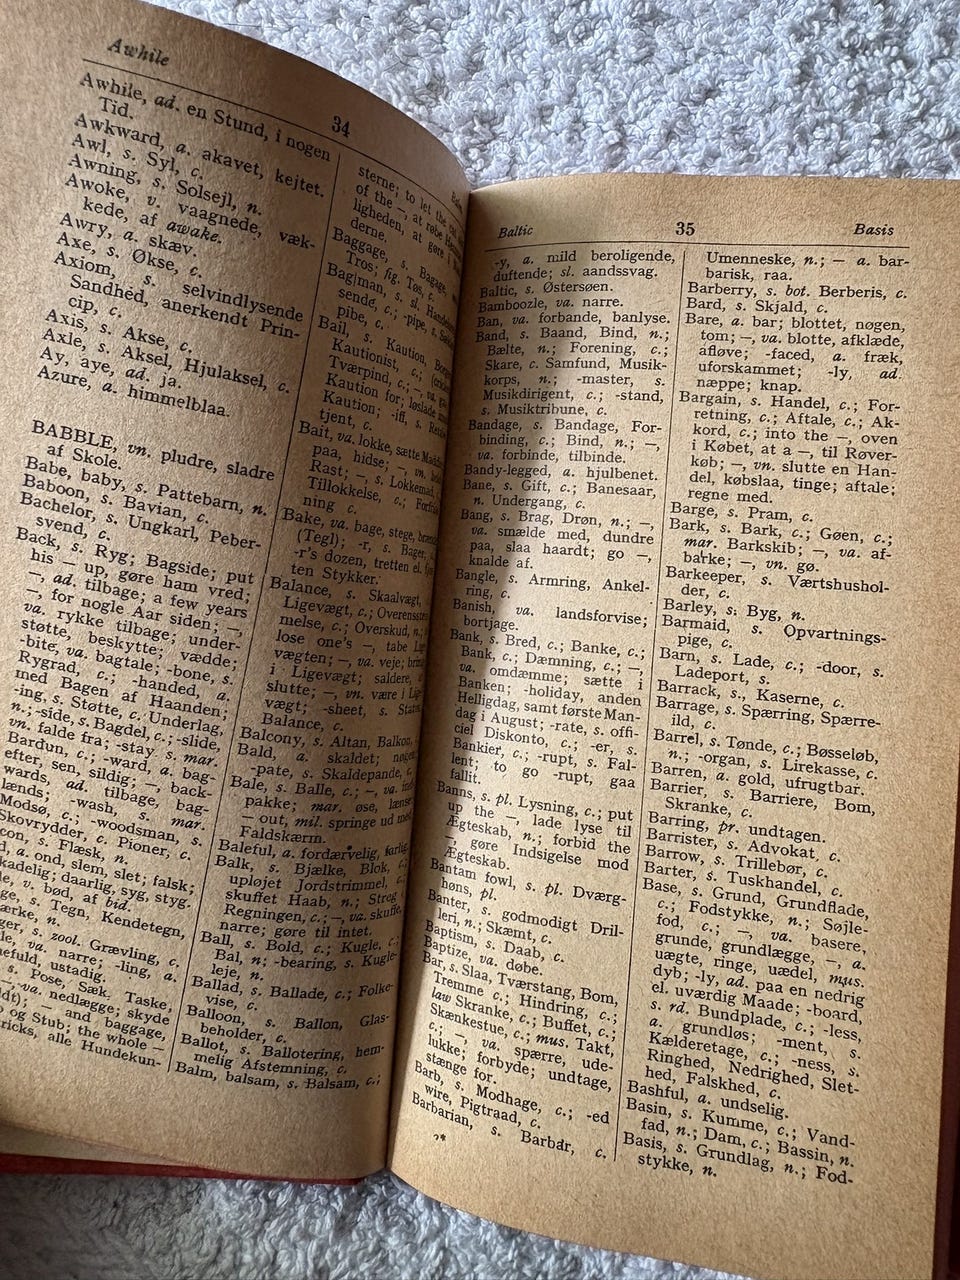 Awhile
34
Awhile, ad. en Stund, i nogen
Tid.
Awkward, a. akavet, kejtet.
Awl, s. Syl, c.
Awning, s. Solsejl, n.
Awoke, v. vaagnede, væk-
kede, af awake.
Awry, a. skæv.
Axe, s. Økse, c.
Axiom, s. selvindlysende
Sandhed, anerkendt Prin-
cip, c.
Axis, s. Akse, c.
Axle, s. Aksel, Hjulaksel, c.
Ay, aye, ad. ja.
Azure, a. himmelblaa.
BABBLE, vn. pludre, sladre
af Skole.
Babe, baby, s. Pattebarn, n.
Baboon, s. Bavian, c.
Bachelor, s. Ungkarl, Peber-
svend, c.
Back, s. Ryg; Bagside; put
his — up, gøre ham vred;
—, ad. tilbage; a few years
—, for nogle Aar siden; —,
va. rykke tilbage; under-
støtte, beskytte; vædde;
-bite, va. bagtale; -bone, s.
Rygrad, c.; -handed, a.
med Bagen af Haanden;
-ing, s. Støtte, c.; Underlag,
n.; -side, s. Bagdel, c.; -slide,
vn. falde fra; -stay, s. mar.
Bardun, c.; -ward, a. bag-
efter, sen, sildig; —, back-
wards, ad. tilbage, bag-
lænds; -wash, s. mar.
Modsø, c.; -woodsman, s.
Skovrydder, c. Pioner, c.
s. Flæsk, n.
a. ond, slem, slet; falsk;
daarlig, syg, styg.
v. bød, af bid.
s. Tegn, Kendetegn,
n.
s. zool. Grævling, c.
va. narre; -ling, a.
ustadig.
s. Pose, Sæk, Taske,
va. nedlægge; skyde
— and baggage,
og Stub; the whole —
alle Hundekun-
sterne; to let the cat
of the —, at røbe
ligheden, at gøre i
derne.
Baggage, s. Bagage,
Tros; fig. Tøs, c.
Bag|man, s. sl.
sende, c.; -pipe, s.
pibe, c.
Bail, s. Kaution,
Kautionist, c.;
Tværpind, c.; —, va.
Kaution for; løslade
Kaution; -iff, s.
tjent, c.
Bait, va. lokke, sætte
paa, hidse; —, vn.
Rast; —, s. Lokkemad,
Tillokkelse, c.;
ning c.
Bake, va. bage, stege,
(Tegl); -r, s. Bager,
-r's dozen, tretten el.
ten Stykker.
Balance, s. Skaalvægt,
Ligevægt, c.;
melse, c.; Overskud, n.;
lose one's —, tabe
vægten; —, va. veje;
i Ligevægt; saldere,
slutte; —, vn. være i
vægt; -sheet, s.
Balance, c.
Balcony, s. Altan, Balkon,
Bald, a. skaldet;
-pate, s. Skaldepande, c.
Bale, s. Balle, c.; —, va.
pakke; mar. øse,
— out, mil. springe ud med
Faldskærm.
Baleful, a. fordærvelig, farlig.
Balk, s. Bjælke, Blok, c.;
upløjet Jordstrimmel, c.;
skuffet Haab, n.; Streg
Regningen, c.; —, va. skuffe,
narre; gøre til intet.
Ball, s. Bold, c.; Kugle, c.;
Bal, n.; -bearing, s. Kugle-
leje, n.
Ballad, s. Ballade, c.; Folke-
vise, c.
Balloon, s. Ballon, Glas-
beholder, c.
Ballot, s. Ballotering, hem-
melig Afstemning, c.
Balm, balsam, s. Balsam, c.;
Baltic
35
Basis
-y, a. mild beroligende,
duftende; sl. aandssvag.
Baltic, s. Østersøen.
Bamboozle, va. narre.
Ban, va. forbande, banlyse.
Band, s. Baand, Bind, n.;
Bælte, n.; Forening, c.;
Skare, c. Samfund, Musik-
korps, n.; -master, s.
Musikdirigent, c.; -stand,
s. Musiktribune, c.
Bandage, s. Bandage, For-
binding, c.; Bind, n.; —,
va. forbinde, tilbinde.
Bandy-legged, a. hjulbenet.
Bane, s. Gift, c.; Banesaar,
n. Undergang, c.
Bang, s. Brag, Drøn, n.; —,
va. smælde med, dundre
paa, slaa haardt; go —,
knalde af.
Bangle, s. Armring, Ankel-
ring, c.
Banish, va. landsforvise;
bortjage.
Bank, s. Bred, c.; Banke, c.;
Bank, c.; Dæmning, c.; —,
va. omdæmme; sætte i
Banken; -holiday, anden
Helligdag, samt første Man-
dag i August; -rate, s. offi-
ciel Diskonto, c.; -er, s.
Bankier, c.; -rupt, s. Fal-
lent; to go -rupt, gaa
fallit.
Banns, s. pl. Lysning, c.; put
up the —, lade lyse til
Ægteskab, n.; forbid the
—, gøre Indsigelse mod
Ægteskab.
Bantam fowl, s. pl. Dværg-
høns, pl.
Banter, s. godmodigt Dril-
leri, n.; Skæmt, c.
Baptism, s. Daab, c.
Baptize, va. døbe.
Bar, s. Slaa, Tværstang, Bom,
Tremme c.; Hindring, c.;
law Skranke, c.; Buffet, c.;
Skænkestue, c.; mus. Takt,
c.; —, va. spærre, ude-
lukke; forbyde; undtage,
stænge for.
Barb, s. Modhage, c.; -ed
wire, Pigtraad, c.
Barbarian, s. Barbar, c.
2*
Umenneske, n.; — a. bar-
barisk, raa.
Barberry, s. bot. Berberis, c.
Bard, s. Skjald, c.
Bare, a. bar; blottet, nøgen,
tom; —, va. blotte, afklæde,
afløve; -faced, a. fræk,
uforskammet; -ly, ad.
næppe; knap.
Bargain, s. Handel, c.; For-
retning, c.; Aftale, c.; Ak-
kord, c.; into the —, oven
i Købet, at a —, til Røver-
køb; —, vn. slutte en Han-
del, købslaa, tinge; aftale;
regne med.
Barge, s. Pram, c.
Bark, s. Bark, c.; Gøen, c.;
mar. Barkskib; —, va. af-
barke; —, vn. gø.
Barkeeper, s. Værtshushol-
der, c.
Barley, s. Byg, n.
Barmaid, s. Opvartnings-
pige, c.
Barn, s. Lade, c.; -door, s.
Ladeport, s.
Barrack, s., Kaserne, c.
Barrage, s. Spærring, Spærre-
ild, c.
Barrel, s. Tønde, c.; Bøsseløb,
n.; -organ, s. Lirekasse, c.
Barren, a. gold, ufrugtbar.
Barrier, s. Barriere, Bom,
Skranke, c.
Barring, pr. undtagen.
Barrister, s. Advokat, c.
Barrow, s. Trillebør, c.
Barter, s. Tuskhandel, c.
Base, s. Grund, Grundflade,
c.; Fodstykke, n.; Søjle-
fod, c.; —, va. basere,
grunde, grundlægge, —, a.
uægte, ringe, uædel, mus.
dyb; -ly, ad. paa en nedrig
el. uværdig Maade; -board,
s. rd. Bundplade, c.; -less,
a. grundløs; -ment, s.
Kælderetage, c.; -ness, s.
Ringhed, Nedrighed, Slet-
hed, Falskhed, c.
Bashful, a. undselig.
Basin, s. Kumme, c.; Vand-
fad, n.; Dam, c.; Bassin, n.
Basis, s. Grundlag, n.; Fod-
stykke, n.